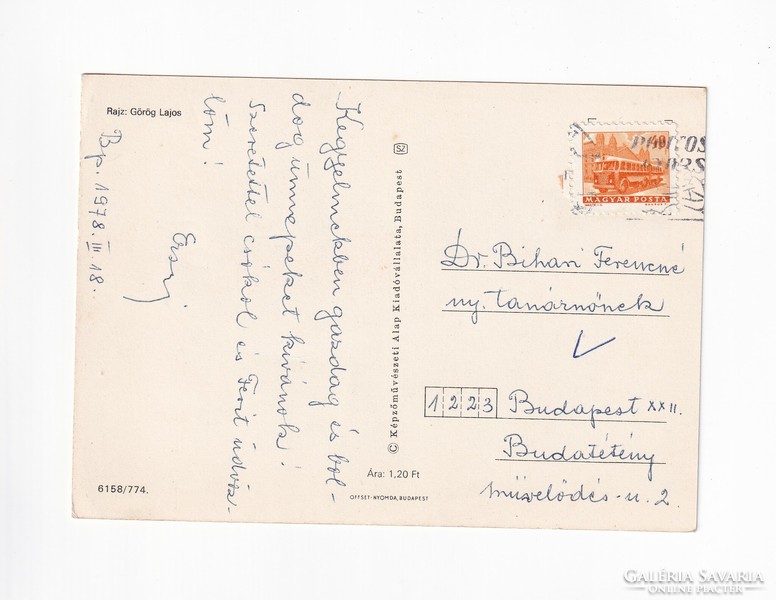 Rajz: Görög Lajos
Bp. 1978. III. 18.
Kegyelmekben gazdag és bol-
dog ünnepeket kívánok!
Szeretettel csókol és Ferit üdvöz-
löm!
Erzsi
6158/774.
© Képzőművészeti Alap Kiadóvállalata, Budapest
SZ
Ára: 1,20 Ft
OFFSET-NYOMDA, BUDAPEST
MAGYAR POSTA
Dr. Bihari Ferencné
ny. tanárnőnek
1223 Budapest XXII.
Budatétény
Művelődés-u. 2.
GALÉRIA SAVARIA
ONLINE PIACTÉR